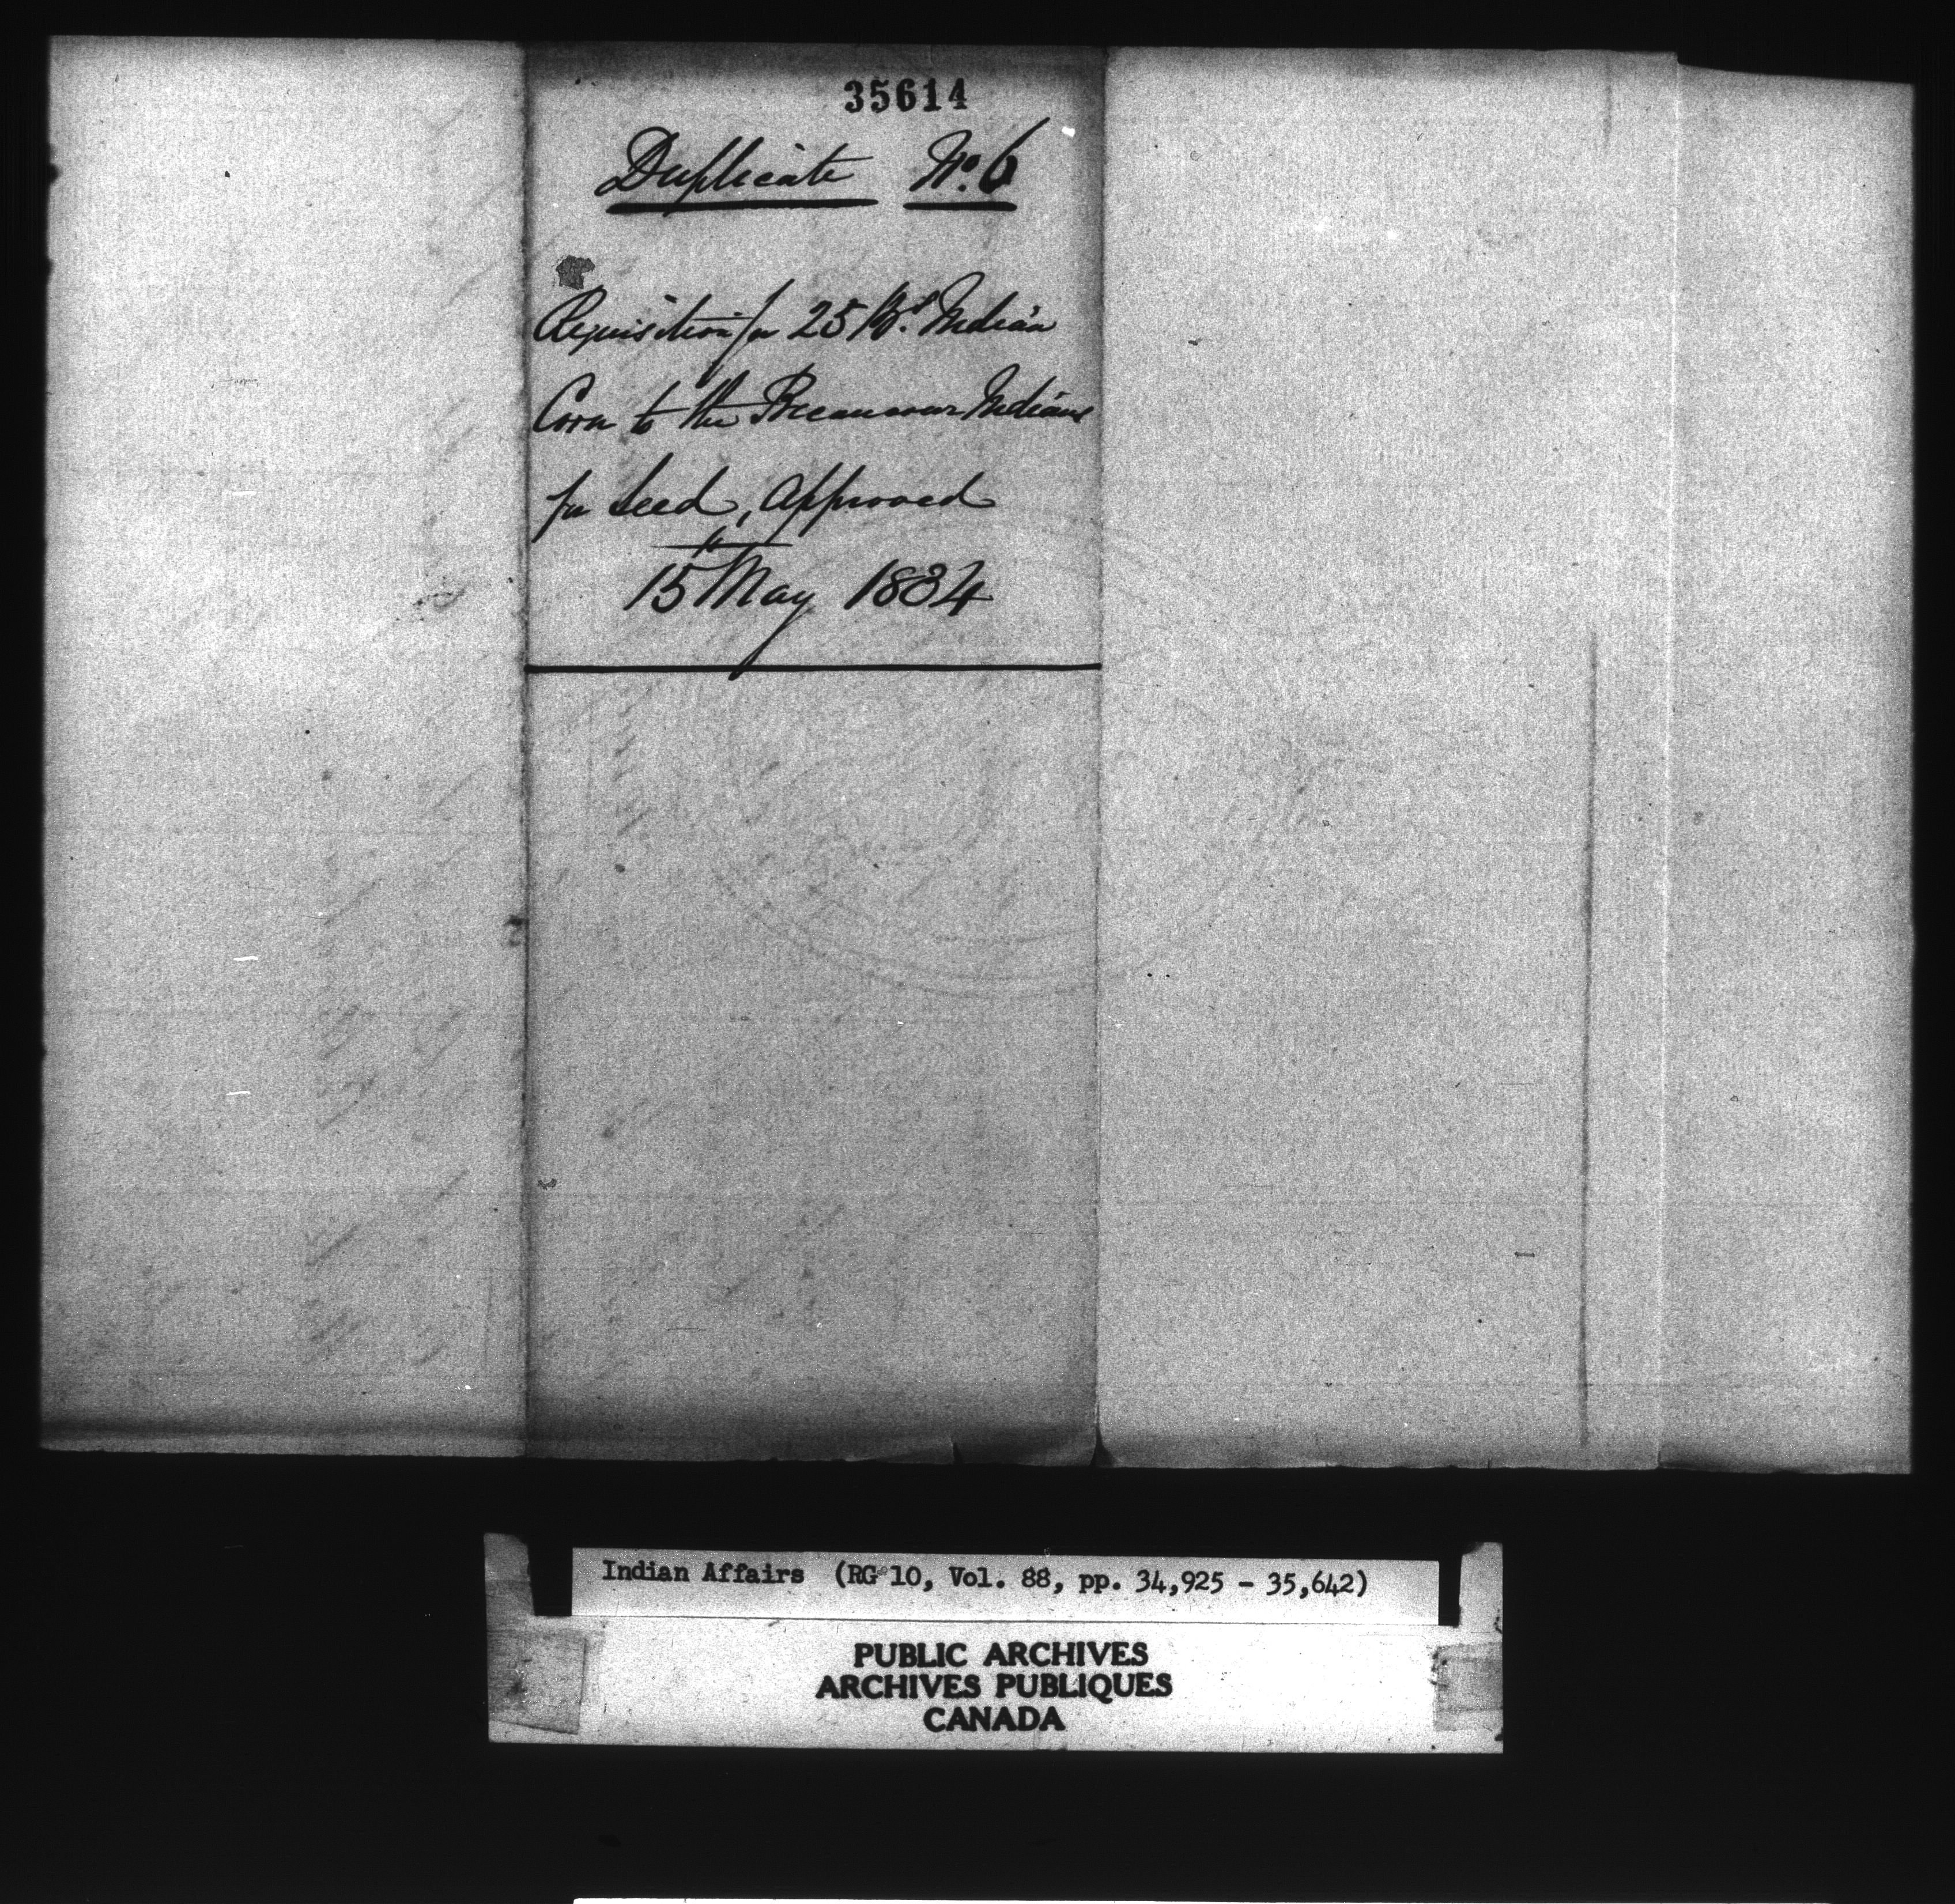 35614
Duplicate No. 6
Requisition for 25 Bls. Indian
Corn to the Becancour Indians
for Seed, Approved
15th May 1834
Indian Affairs (RG 10, Vol. 88, pp. 34,925 - 35,642)
PUBLIC ARCHIVES
ARCHIVES PUBLIQUES
CANADA